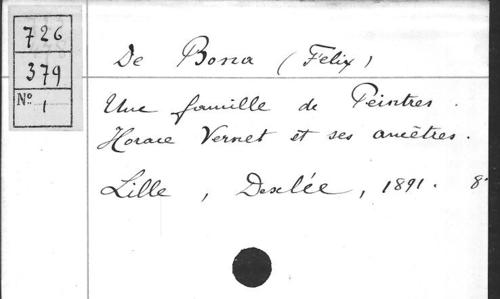 726
379
Nº 1
De Bona (Félix)
Une famille de Peintres.
Horace Vernet et ses ancêtres.
Lille, Desclée, 1891. 8º